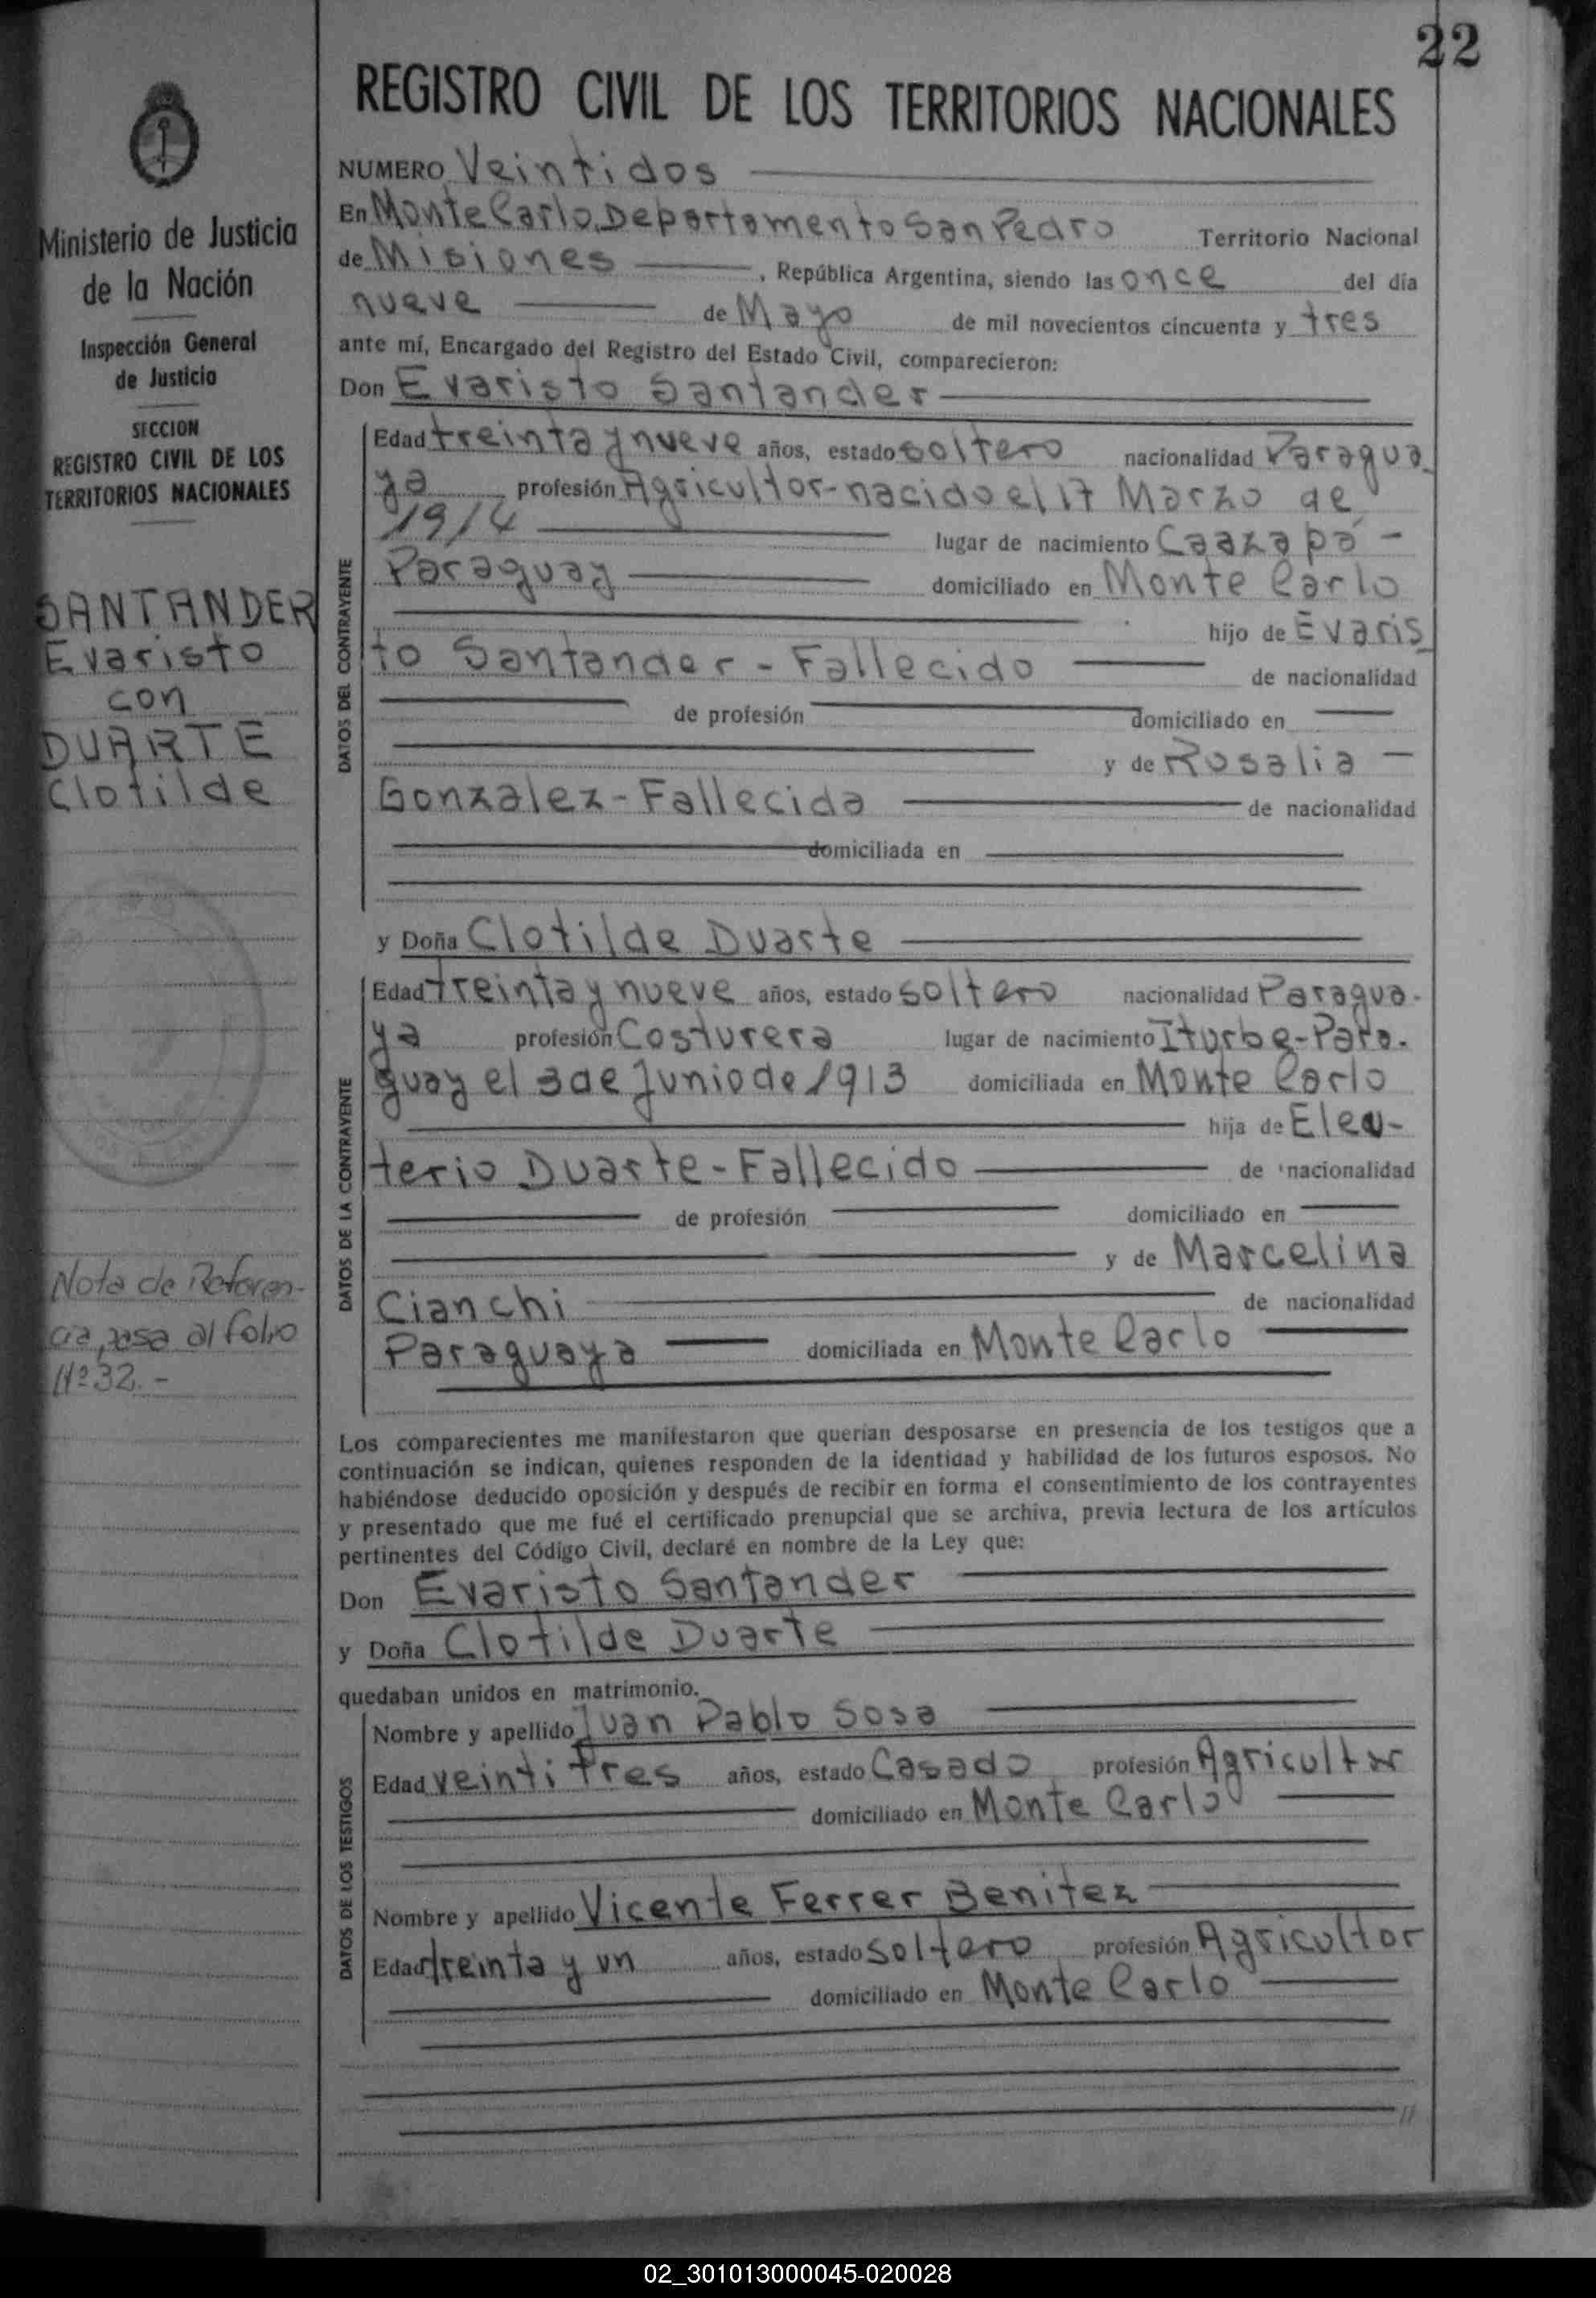 22
REGISTRO CIVIL DE LOS TERRITORIOS NACIONALES
Ministerio de Justicia
de la Nación
Inspección General
de Justicia
SECCION
REGISTRO CIVIL DE LOS
TERRITORIOS NACIONALES
SANTANDER
Evaristo
con
DUARTE
Clotilde
Nota de Referen-
cia, pasa al folio
Nº 32.-
NUMERO Veintidos
En Monte Carlo, Departamento San Pedro Territorio Nacional
de Misiones, República Argentina, siendo las once del día
nueve de Mayo de mil novecientos cincuenta y tres
ante mí, Encargado del Registro del Estado Civil, comparecieron:
Don Evaristo Santander
DATOS DEL CONTRAYENTE
Edad treinta y nueve años, estado soltero nacionalidad Paragua_
ya profesión Agricultor-nacido el 17 Marzo de
1914 lugar de nacimiento Caazapá -
Paraguay domiciliado en Monte Carlo
hijo de Evaris_
to Santander - Fallecido de nacionalidad
de profesión domiciliado en
y de Rosalia -
Gonzalez - Fallecida de nacionalidad
domiciliada en
y Doña Clotilde Duarte
DATOS DE LA CONTRAYENTE
Edad treinta y nueve años, estado soltero nacionalidad Paragua-
ya profesión Costurera lugar de nacimiento Iturbe-Para-
guay el 3 de Junio de 1913 domiciliada en Monte Carlo
hija de Eleu-
terio Duarte - Fallecido de nacionalidad
de profesión domiciliado en
y de Marcelina
Cianchi de nacionalidad
Paraguaya domiciliada en Monte Carlo
Los comparecientes me manifestaron que querían desposarse en presencia de los testigos que a
continuación se indican, quienes responden de la identidad y habilidad de los futuros esposos. No
habiéndose deducido oposición y después de recibir en forma el consentimiento de los contrayentes
y presentado que me fué el certificado prenupcial que se archiva, previa lectura de los artículos
pertinentes del Código Civil, declaré en nombre de la Ley que:
Don Evaristo Santander
y Doña Clotilde Duarte
quedaban unidos en matrimonio.
DATOS DE LOS TESTIGOS
Nombre y apellido Juan Pablo Sosa
Edad veintitres años, estado Casado profesión Agricultor
domiciliado en Monte Carlo
Nombre y apellido Vicente Ferrer Benitez
Edad treinta y un años, estado soltero profesión Agricultor
domiciliado en Monte Carlo
//
02_301013000045-020028